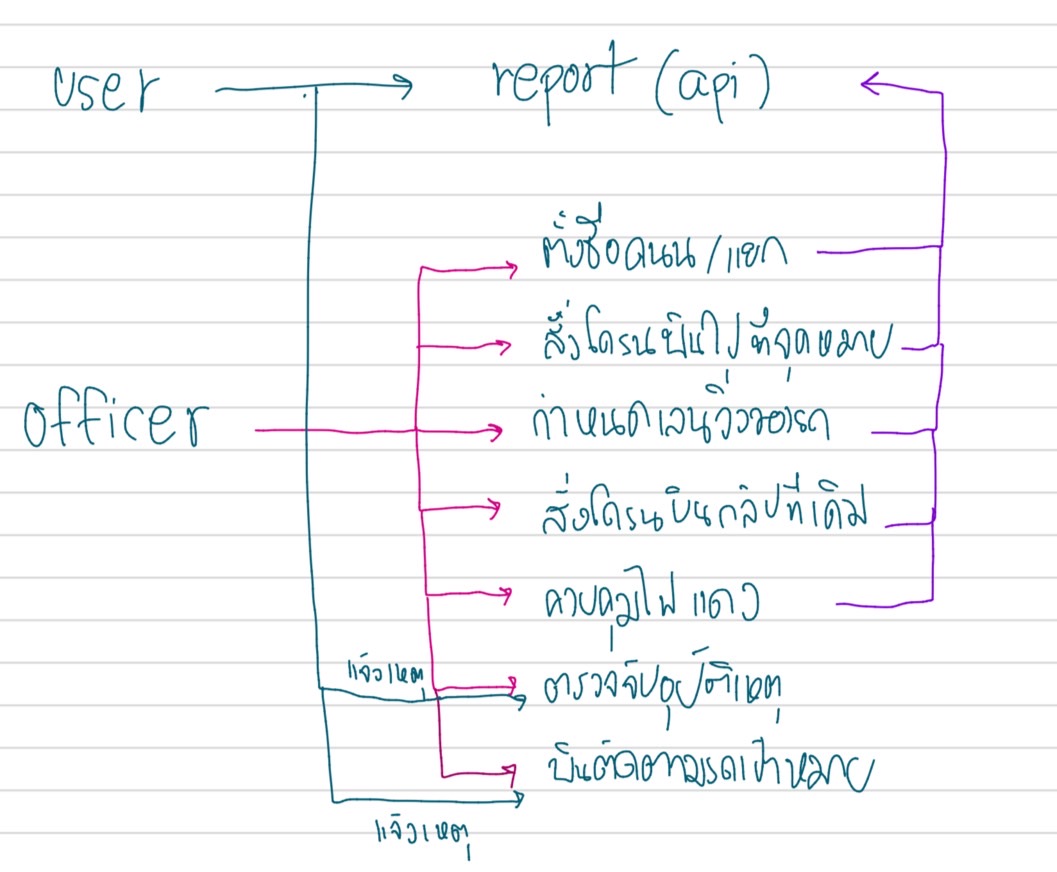 user report (api)
ตั้งชื่อถนน/แยก
สั่งโดรนบินไปที่จุดหมาย
officer กำหนดเลนวิ่งของรถ
สั่งโดรนบินกลับที่เดิม
ควบคุมไฟแดง
แจ้งเหตุ ตรวจจับอุบัติเหตุ
บินติดตามรถเป้าหมาย
แจ้งเหตุ